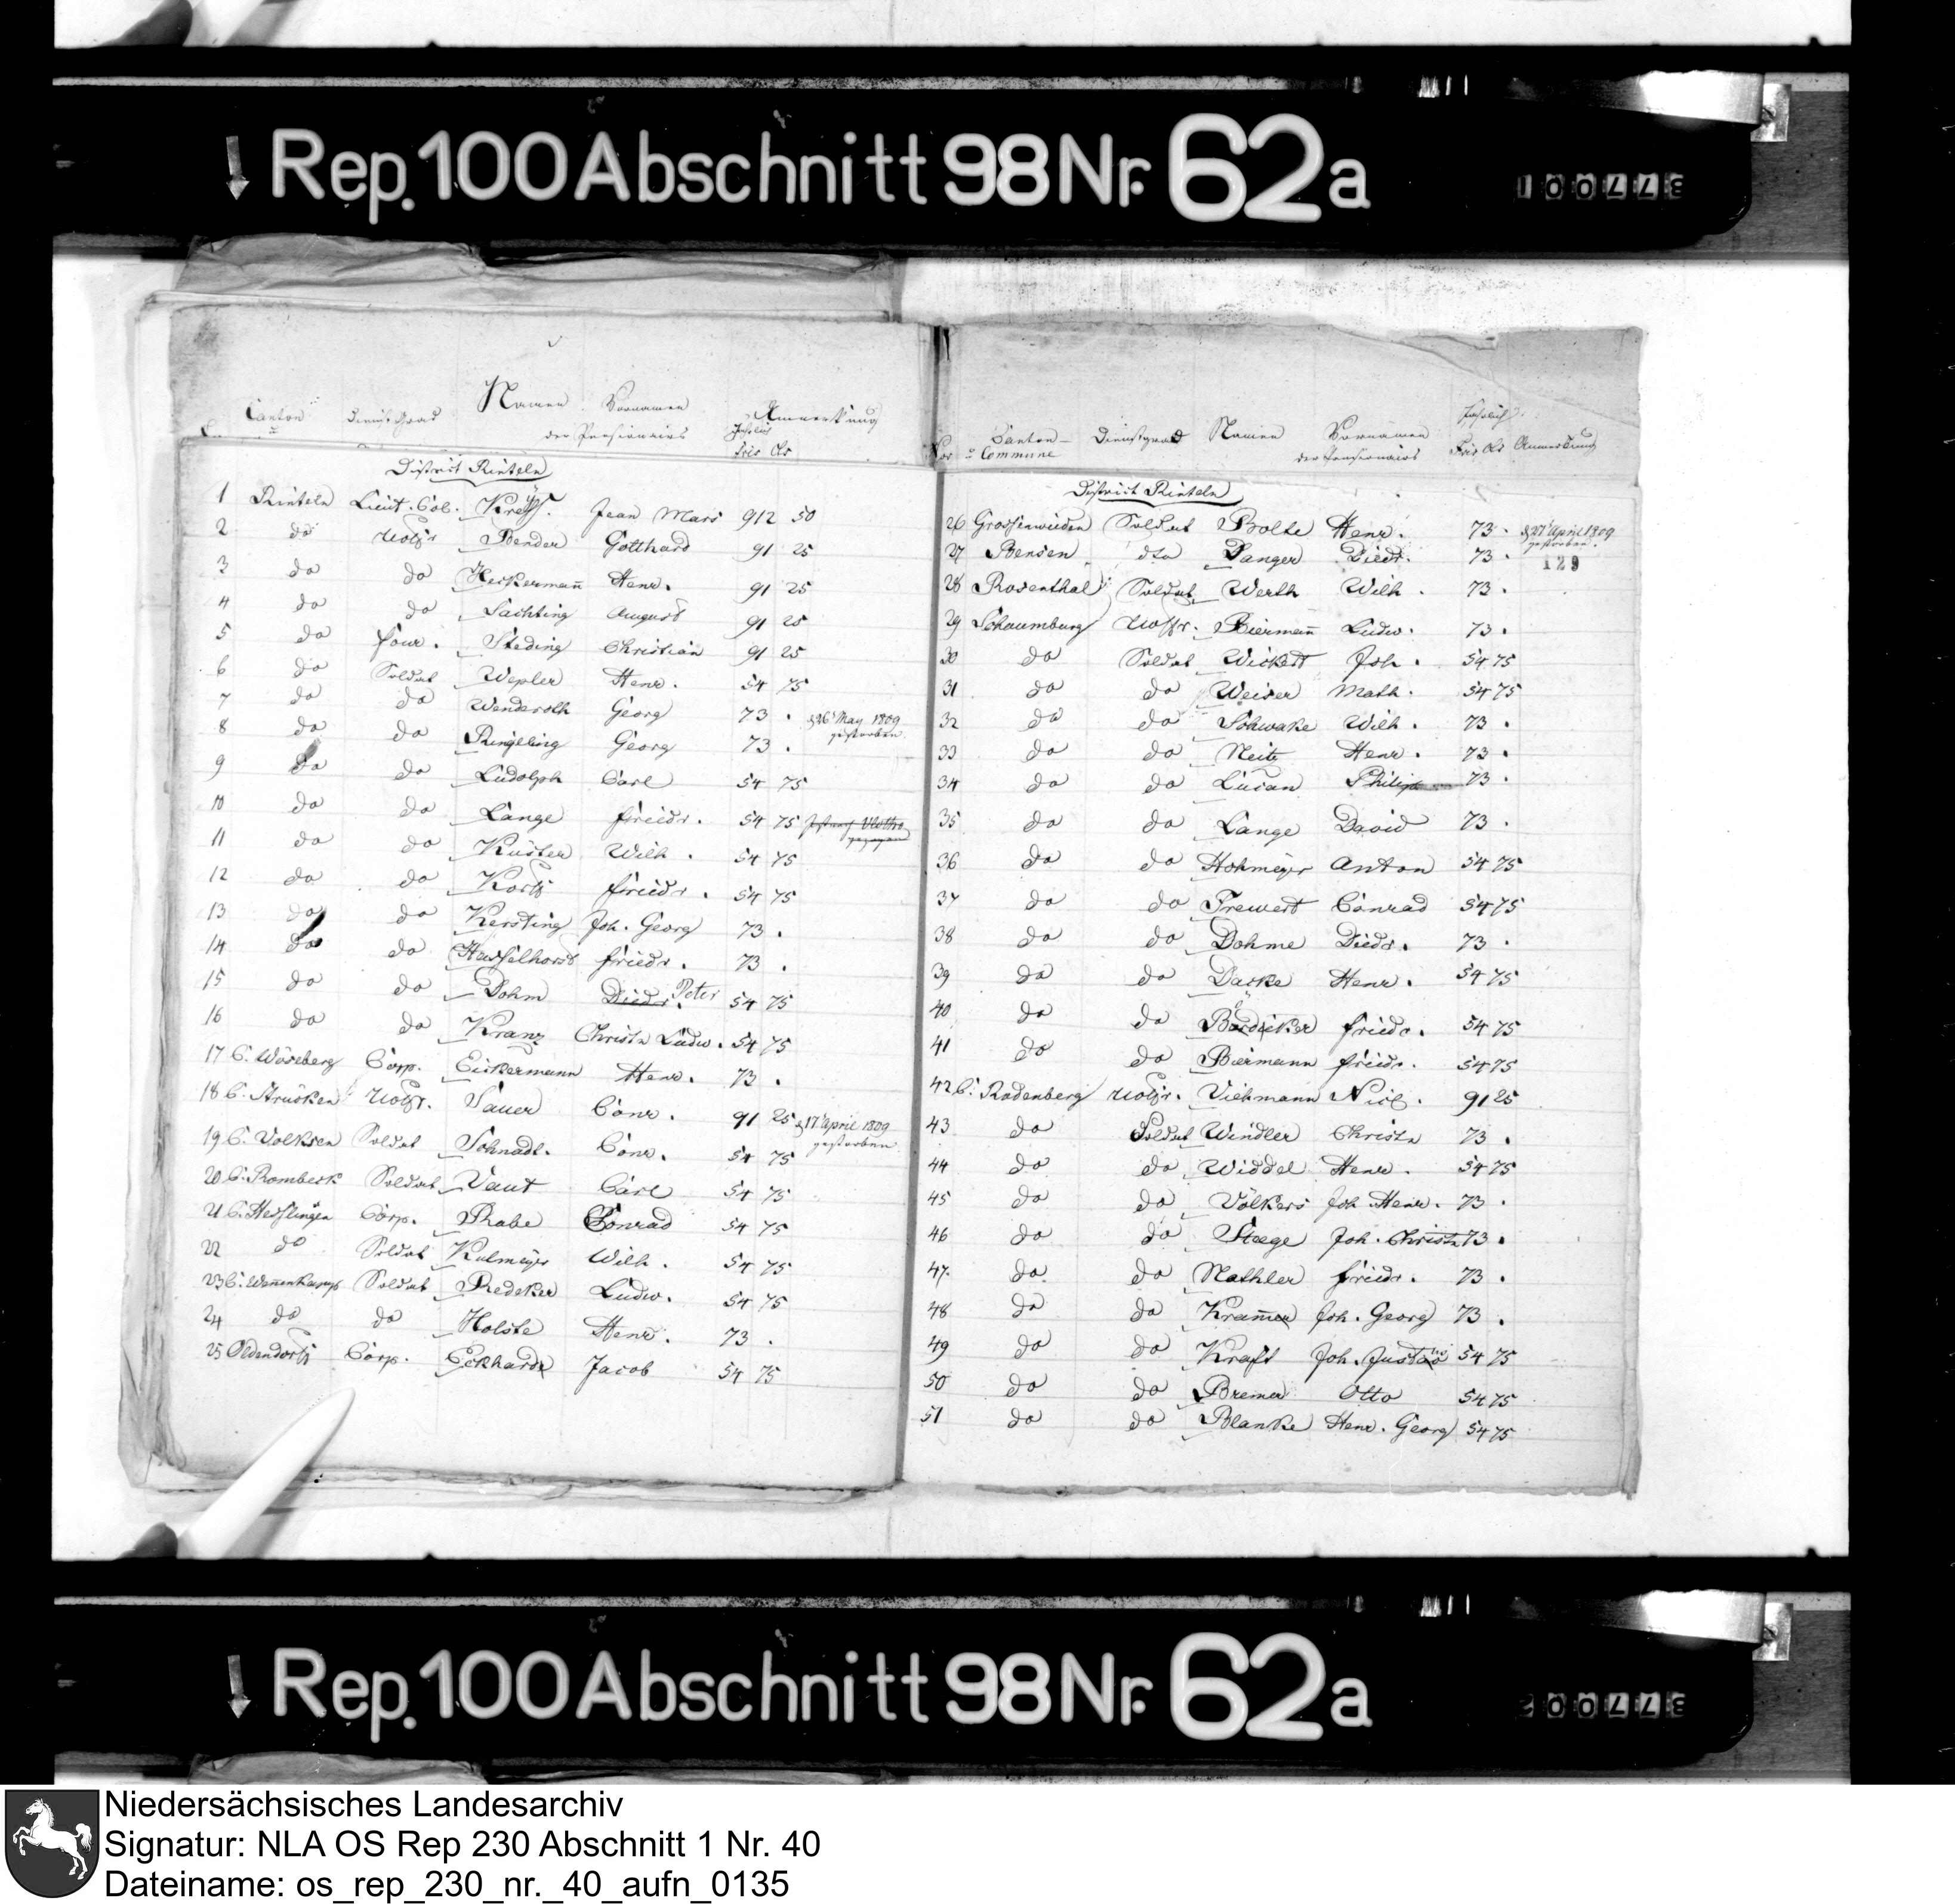 Rep. 100 Abschnitt 98 Nr. 62a
Canton Dienst Grad Namen Vornamen Anmerkung
der Pensionairs Jährlich
Frcs Cts
District Rinteln
1 Rinteln Lieut. Col. Jean Mars 912 50
2 do Uoffr Bender Gotthard 91 25
3 do do Heckermann Henr. 91 25
4 do do Lachting August 91 25
5 do four. Steding Christian 91 25
6 do Soldat Wepler Henr. 54 75
7 do do Wenderoth Georg 73 . d 26 May 1809 gestorben
8 do do Ringeling Georg 73 .
9 do do Ludolph Carl 54 75
10 do do Lange friedr. 54 75
11 do do Kuster Wilh. 54 75
12 do do Korff friedr. 54 75
13 do do Kersting Joh. Georg 73 .
14 do do Hasselhorst friedr. 73 .
15 do do Dohm Diedr. Peter 54 75
16 do do Kranz Christn Ludw. 54 75
17 C. Corp. Eickermann Henr. 73 .
18 C. Strücken Uoffr. Sauer Conr. 91 25 d 17 April 1809 gestorben
19 C. Volksen Soldat Schnadt. Conr. 54 75
20 C. Rombeck Soldat Vaut Carl 54 75
21 C. Hesslingen Corp. Rabe Conrad 54 75
22 do Soldat Kulmeyer Wilh. 54 75
23 C. Wennenkamp Soldat Redeker Ludw. 54 75
24 do do Holste Henr. 73 .
25 Oldendorff Corp. Eckhardt Jacob 54 75
Nor Canton u Commune Dienstgrad Namen Vornamen Jährlich
der Pensionairs Frcs Cts Anmerkung
District Rinteln
26 Grossenwieden Soldat Bolte Henr. 73 . d 27 April 1809 gestorben.
27 Bensen dto Danger Diedr. 73 .
129
28 Rosenthal Soldat Werth Wilh. 73 .
29 Schaumburg Uoffr. Biermann Ludw. 73 .
30 do Soldat Wickert Joh. 54 75
31 do do Weiser Math. 54 75
32 do do Schwake Wilh. 73 .
33 do do Neitz Henr. 73 .
34 do do Lucan Philip 73 .
35 do do Lange David 73 .
36 do do Hohmeyer Anton 54 75
37 do do Frewert Conrad 54 75
38 do do Dohme Diedr. 73 .
39 do do Darke Henr. 54 75
40 do do friedr. 54 75
41 do do Biermann friedr. 54 75
42 C. Rodenberg Uoffr. Viehmann Nicl. 91 25
43 do Soldat Windler Christn 73 .
44 do do Widdel Henr. 54 75
45 do do Völkers Joh. Henr. 73 .
46 do do Steege Joh. Christn 73 .
47. do do Nathler friedr. 73 .
48 do do Kramer Joh. Georg 73 .
49 do do Kraft Joh. Justus 54 75
50 do do Bremer Otto 54 75
51 do do Blanke Henr. Georg 54 75
Rep. 100 Abschnitt 98 Nr. 62a
Niedersächsisches Landesarchiv
Signatur: NLA OS Rep 230 Abschnitt 1 Nr. 40
Dateiname: os_rep_230_nr._40_aufn_0135